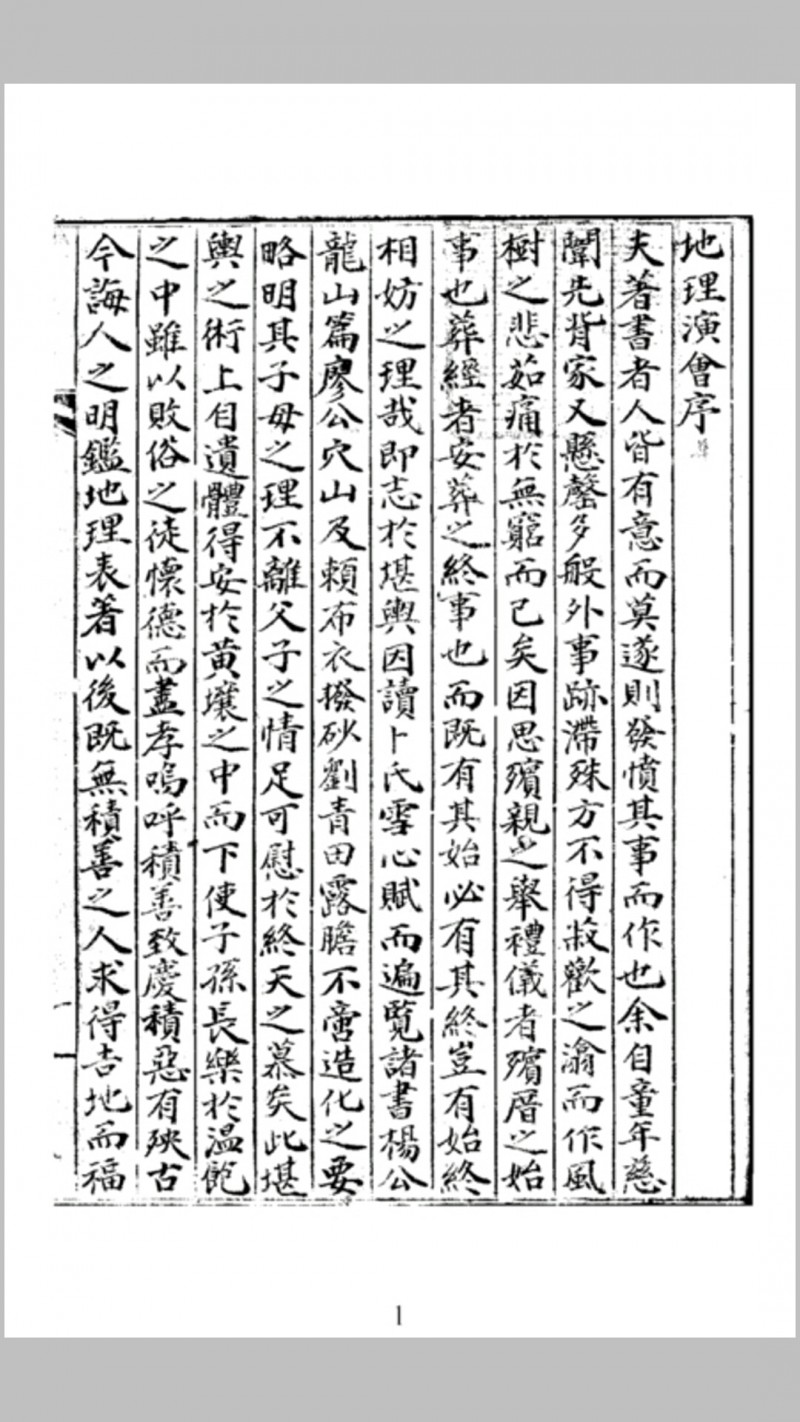 地理演會序
夫著書者人皆有意而莫遂則發憤其事而作也余自童年慈
闈先背家又懸罄多般外事跡滯殊方不得菽歡之滫而作風
樹之悲茹痛於無窮而已矣因思殯親之舉禮儀者殯厝之始
事也葬經者安葬之終事也而既有其始必有其終豈有始終
相妨之理哉即志於堪輿因讀卜氏雪心賦而遍覧諸書楊公
龍山篇廖公穴山及賴布衣撥砂劉青田露膽不啻造化之要
略明其子母之理不離父子之情足可慰於終天之慕矣此堪
輿之術上自遺體得安於黃壤之中而下使子孫長樂於温飽
之中雖以敗俗之徒懷德而盡孝嗚呼積善致慶積惡有殃古
今誨人之明鑑地理表著以後既無積善之人求得吉地而福
1